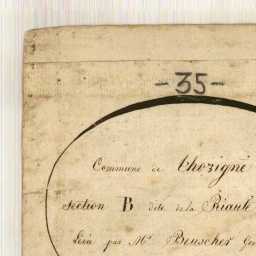 -35-
Commune de Thorigné
Section B dite de la Riault
Levé par Mr Beuscher Gé